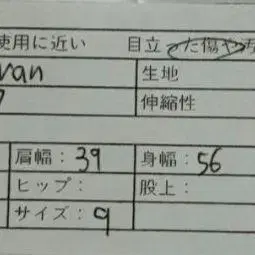 使用に近い 目立った傷や汚
van 生地
伸縮性
肩幅：39 身幅：56
ヒップ： 股上：
サイズ：9